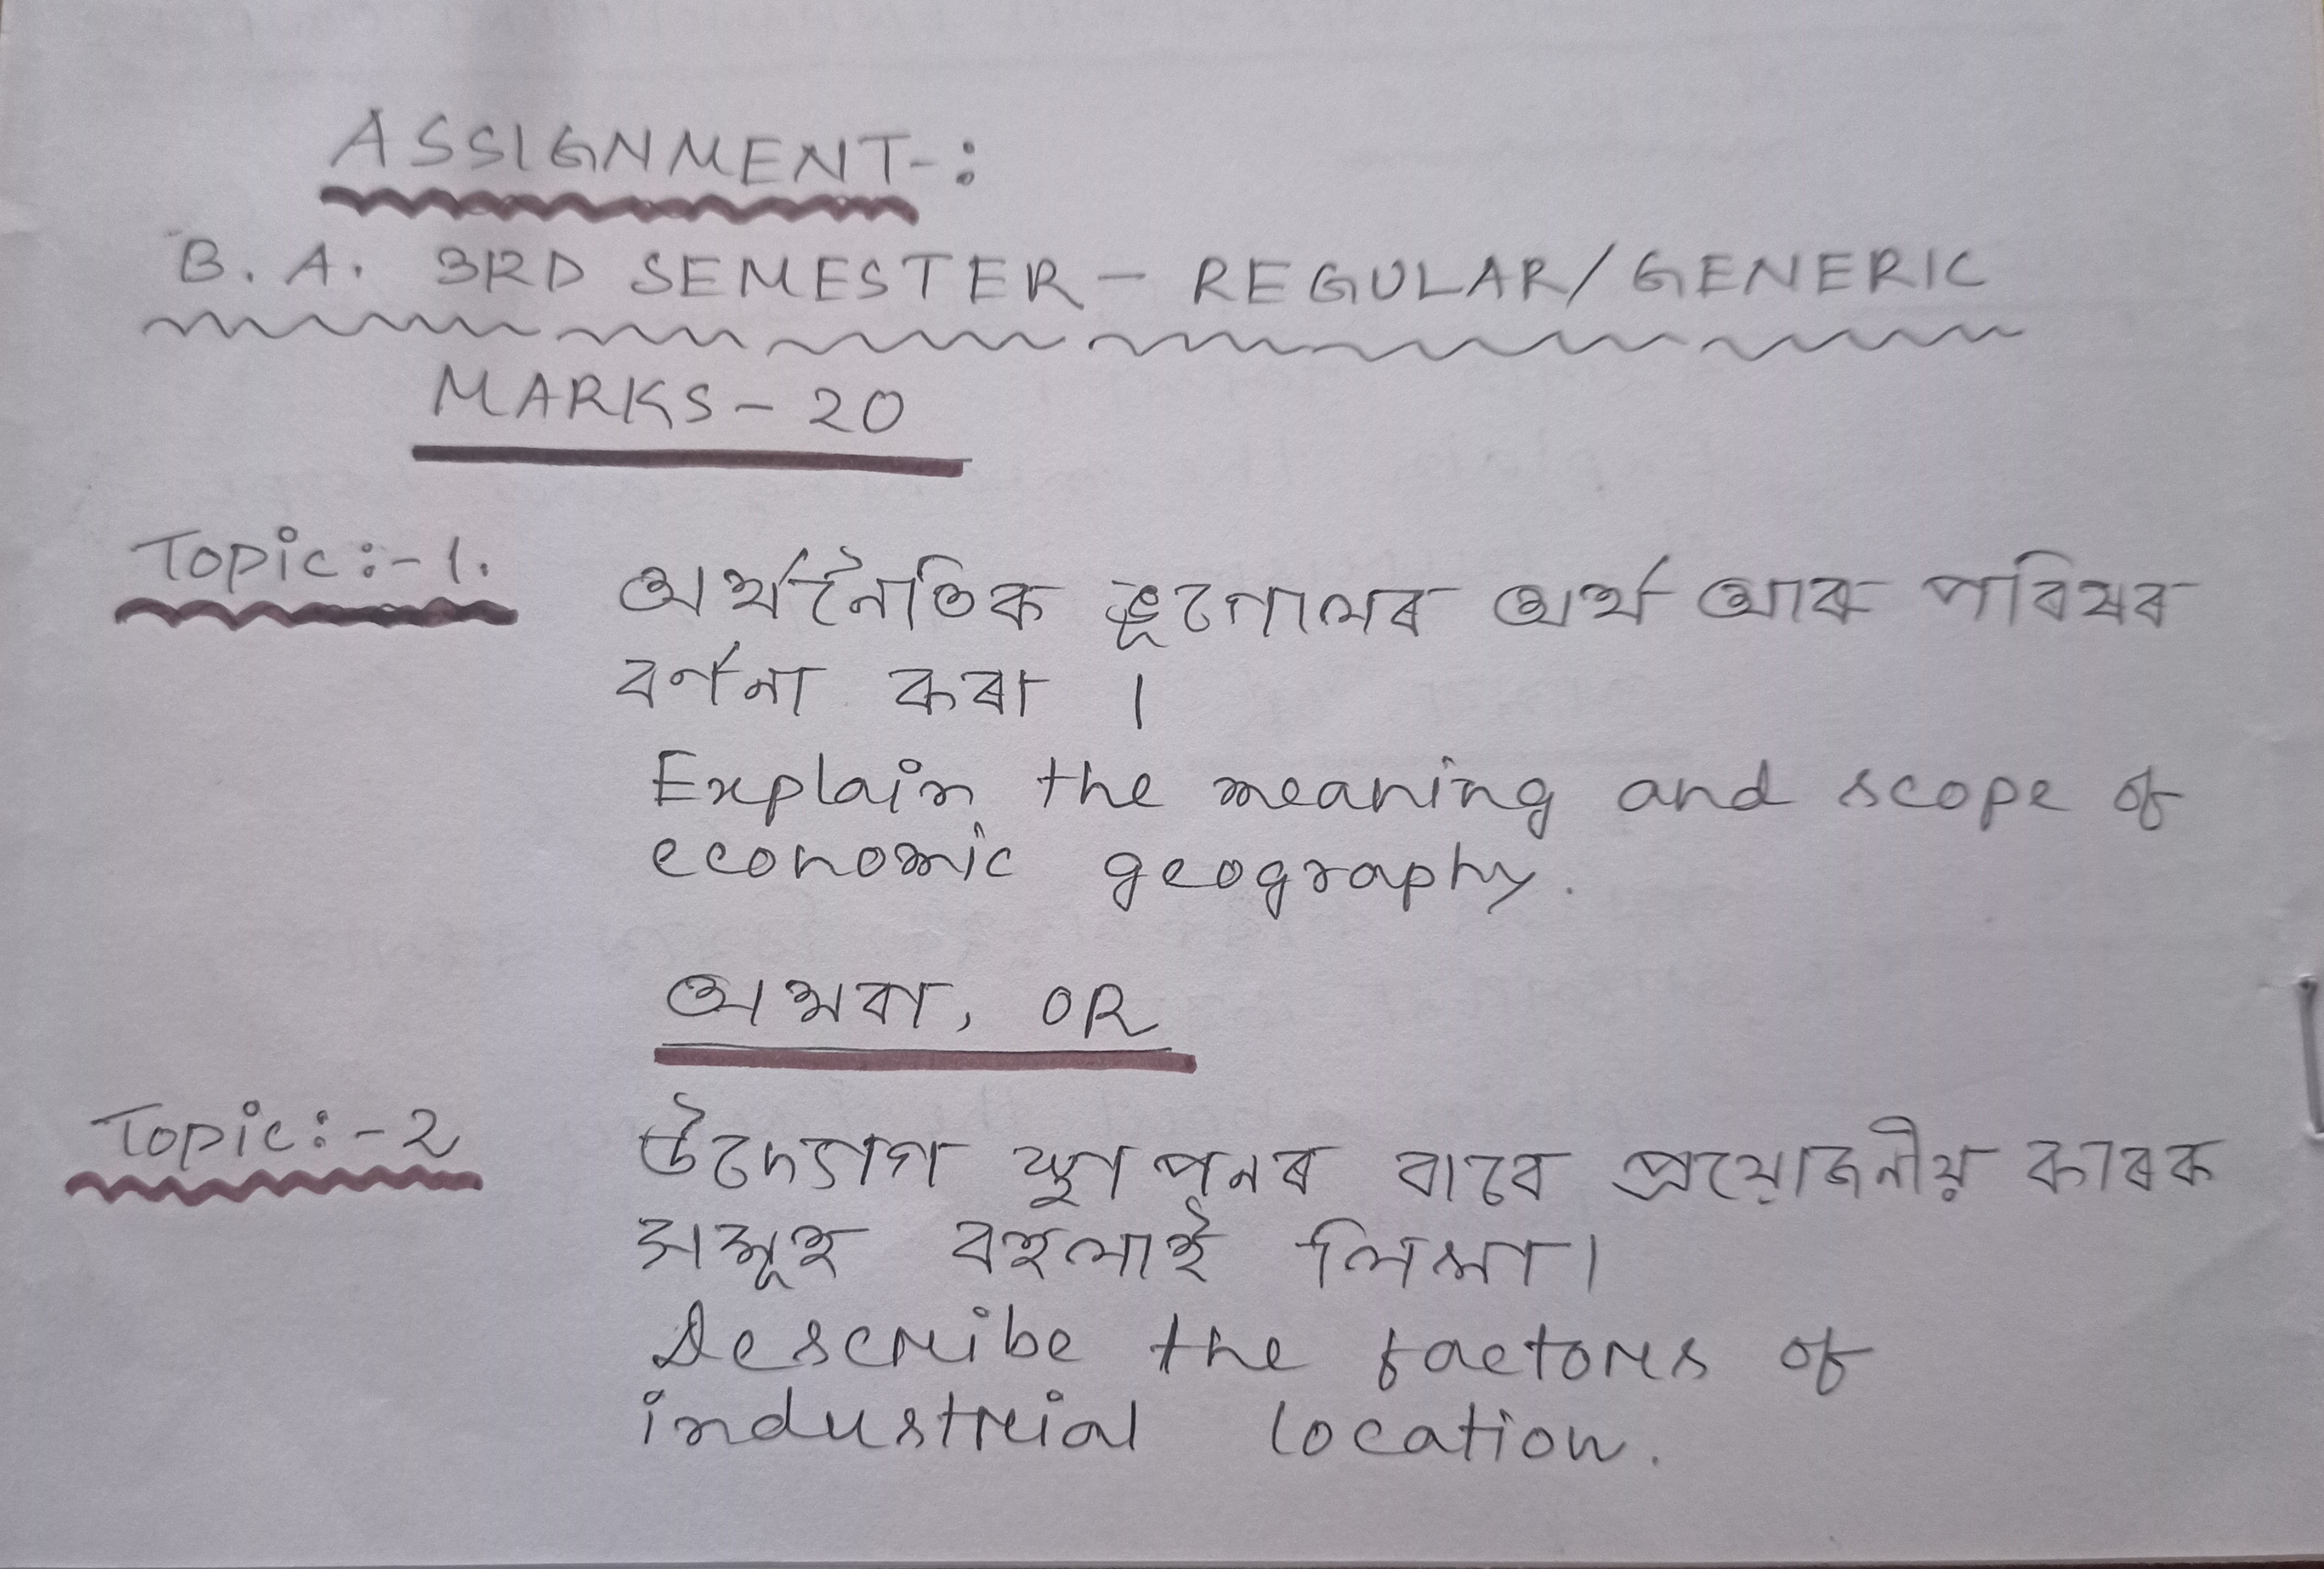 ASSIGNMENT-:
B. A. 3RD SEMESTER - REGULAR/GENERIC
MARKS - 20
Topic:-1. অৰ্থনৈতিক ভূগোলৰ অৰ্থ আৰু পৰিসৰ
বৰ্ণনা কৰা ।
Explain the meaning and scope of
economic geography.
অথবা, OR
Topic:-2 উদ্যোগ স্থাপনৰ বাবে প্ৰয়োজনীয় কাৰক
সমূহ বহলাই লিখা।
Describe the factors of
industrial location.